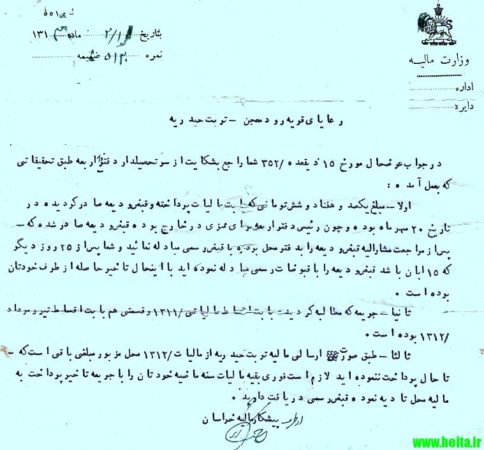 وزارت مالیه
اداره
دایره
بتاریخ ماه ۱۳۱
نمره ۵۱۳ ضمیمه
رعایای قریه رودمعجن - تربت حیدریه
درجواب عرضحال مورخ ۱۵ ذیقعده /۳۵۲ شما راجع بشکایت از سر تحصیلدار دفتر اربعه طبق تحقیقاتی
که بعمل آمده :
اولا - مبلغ یکصد و هفتاد و شش تومانی که بابت مالیات پرداخته و قبض ودیعه صادر گردیده در
تاریخ ۲۰ مهرماه بوده و چون رئیس دفتر اربعه برای ممیزی در خارج بوده قبض ودیعه صادر شده که -
پس از مراجعت مشارالیه قبض ودیعه را به دفتر محل بردیه با قبض رسمی مبادله نمائید و شما پس از ۲۵ روز دیگر
که ۱۵ ابان باشد قبض ودیعه را با قبوضات رسمی مبادله نموده اید با اینحال تاخیر حاصله از طرف خودتان
بوده است .
ثانیا - جریمه که مطالبه گردیده بابت اقساط مالیاتی /۱۳۱۱ و قسمتی هم بابت اقساط تیر و مرداد
/۱۳۱۲ بوده است .
ثالثا - طبق صورت ارسالی مالیه تربت حیدریه از مالیات /۱۳۱۲ محل مزبور مبلغی باقی است که -
تا حال پرداخت ننموده اید لازم است فوری بقیه مالیات سنه ماضیه خودتان را با جریمه تاخیر پرداخت به
مالیه محل تادیه نموده قبض رسمی دریافت دارید .
از طرف پیشکار مالیه خراسان
www.helta.ir